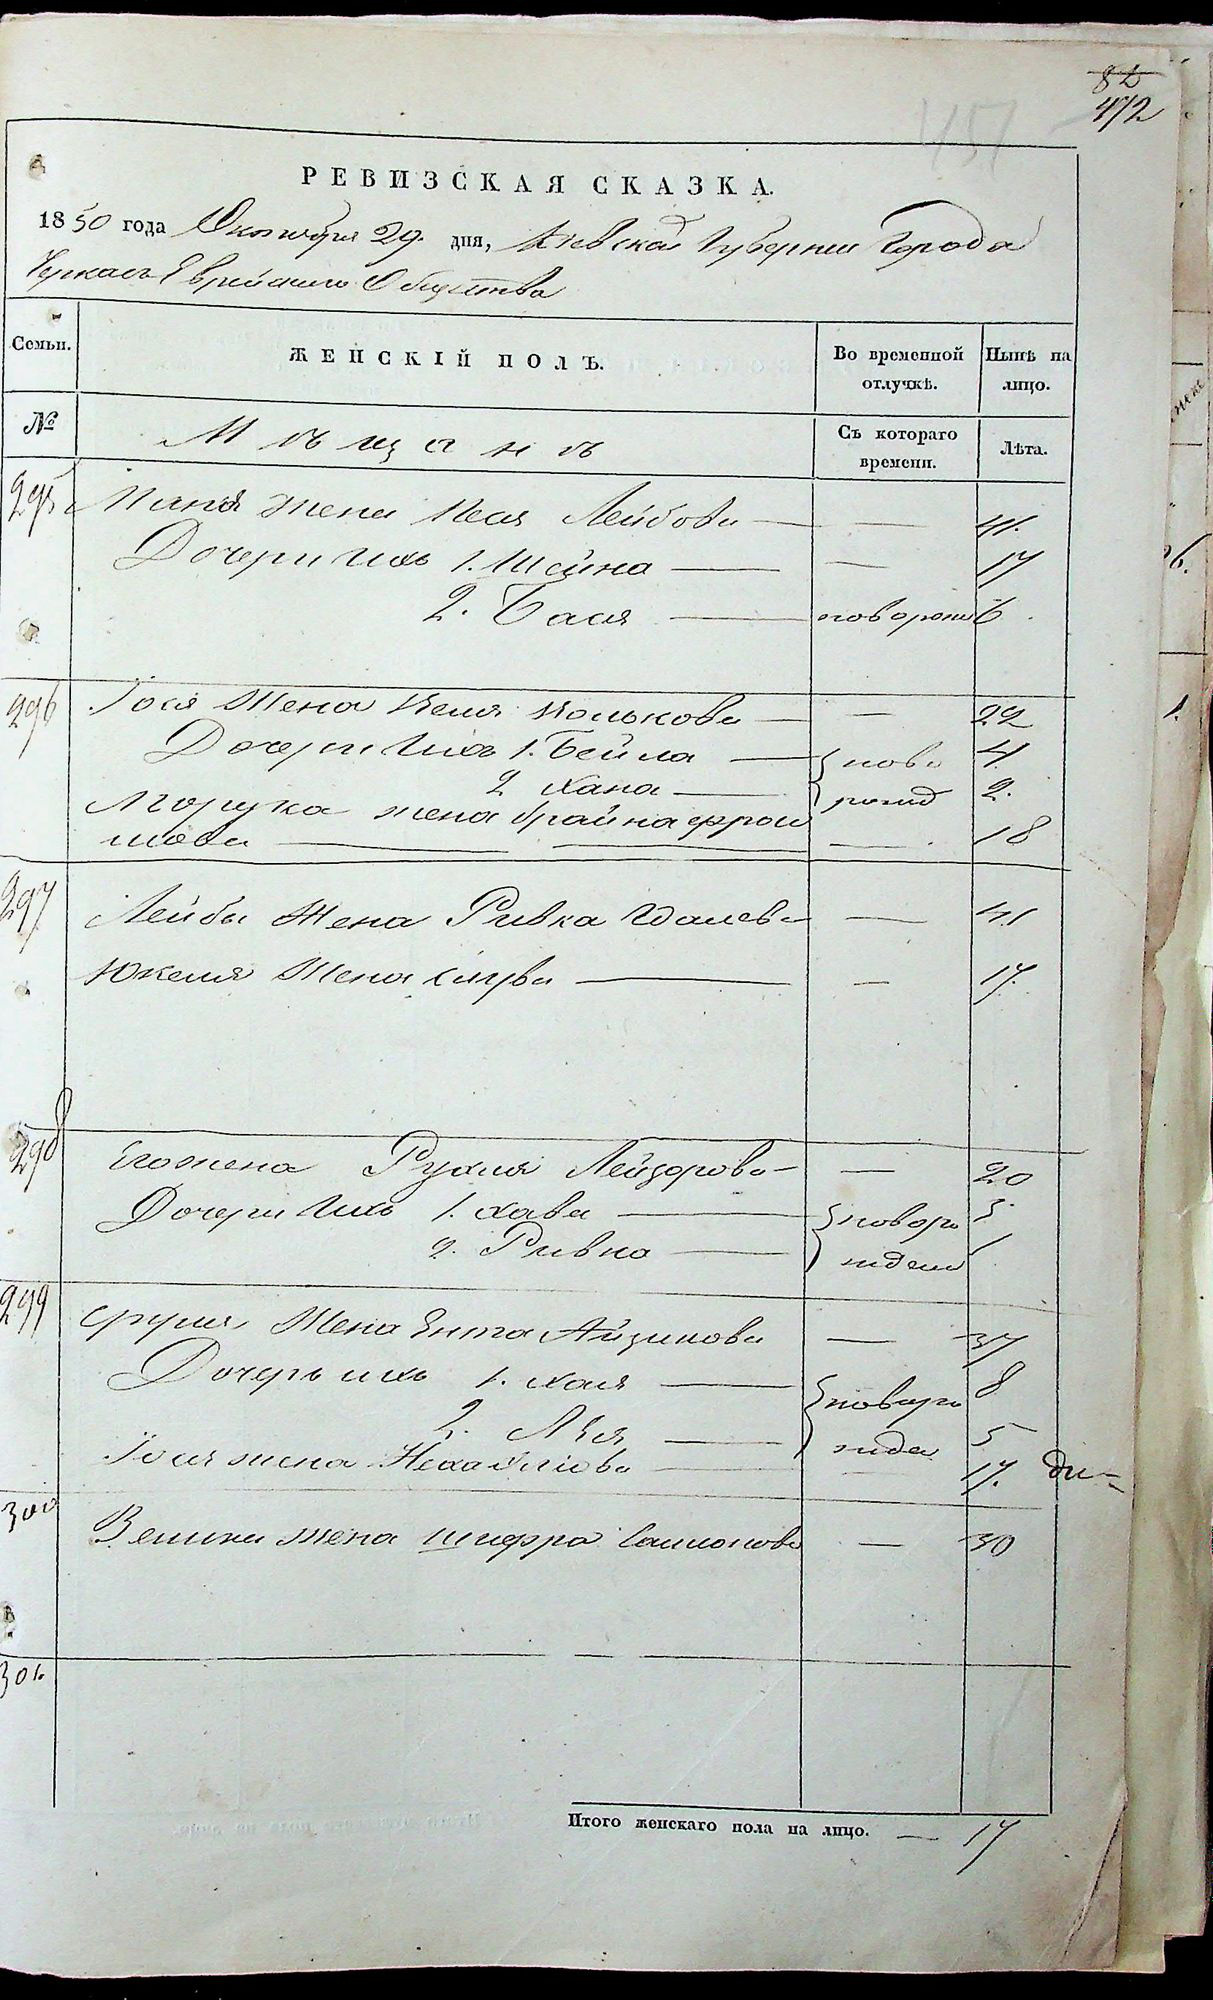 82
472
451
РЕВИЗСКАЯ СКАЗКА.
1850 года Октября 29. дня, Кіевской Губерніи Города
Черкасъ Еврейскаго Общества
Семьи. ЖЕНСКІЙ ПОЛЪ. Во временной отлучкѣ. Нынѣ на лицо.
№ Мѣщанъ Съ котораго времени. Лѣта.
295 жена Песя Лейбова — — 41.
Дочери ихъ 1. Шейна — — 17
2. Бася — новорожд 6
296 Іося Жена Кейля — — 22
Дочери Ихъ 1. Бейла — ново 4
2 Хана — рожд 2.
Мордка жена Фрои
мова — — 18
297 Лейбы Жена Ривка — 41
Юкеля Жена — — 17.
298 Его жена Рухля Лейзорова — — 20
Дочери Ихъ 1. Хава — новоро 3.
2. Ривка — ждены 1.
299 Сруля Жена Ента Айзикова — 37
Дочерь ихъ 1. Хая — новоро 8
2. Лея — жде 5
жена Неха — 17.
300 жена Шифра — 30
301.
Итого женскаго пола на лицо. — 17